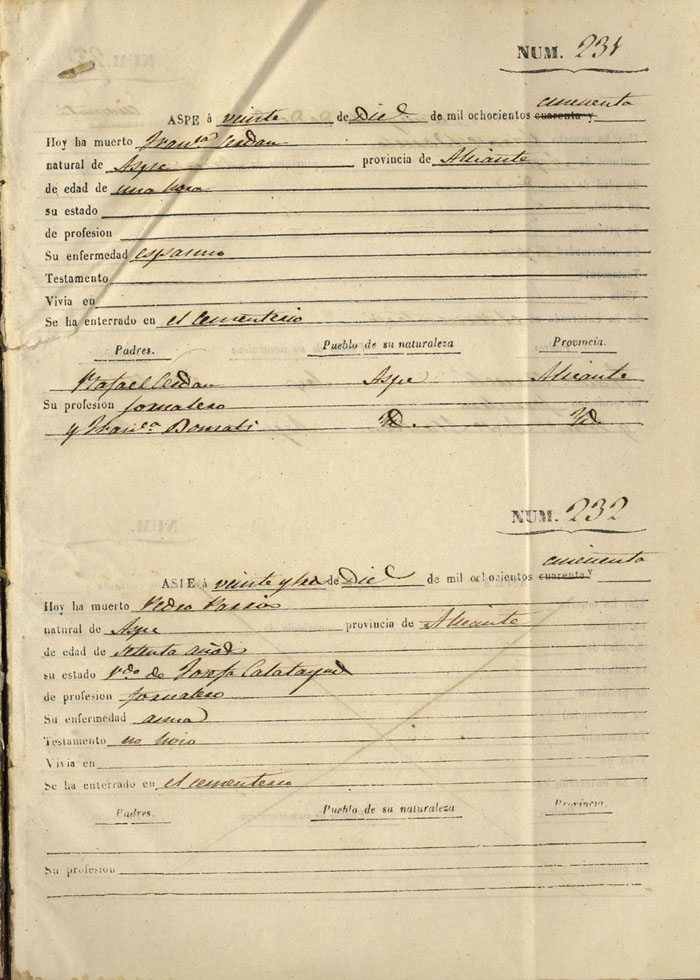 NUM. 231
cincuenta
ASPE á veinte de Dic.e de mil ochocientos cuarenta y
Hoy ha muerto Fran.ca Cerdan
natural de Aspe provincia de Alicante
de edad de una hora
su estado
de profesion
Su enfermedad espasmo
Testamento
Vivia en
Se ha enterrado en el Cementerio
Padres. Pueblo de su naturaleza Provincia.
Rafael Cerdan Aspe Alicante
Su profesion jornalero
y Fran.ca Bonmati Yd. Yd
NUM. 232
cincuenta
ASPE á veinte y tres de Dic.e de mil ochocientos cuarenta y
Hoy ha muerto Pedro
natural de Aspe provincia de Alicante
de edad de setenta años
su estado v.do de Josefa Calatayud
de profesion jornalero
Su enfermedad asma
Testamento no hizo
Vivia en
Se ha enterrado en el cementerio
Padres. Pueblo de su naturaleza Provincia.
Su profesion